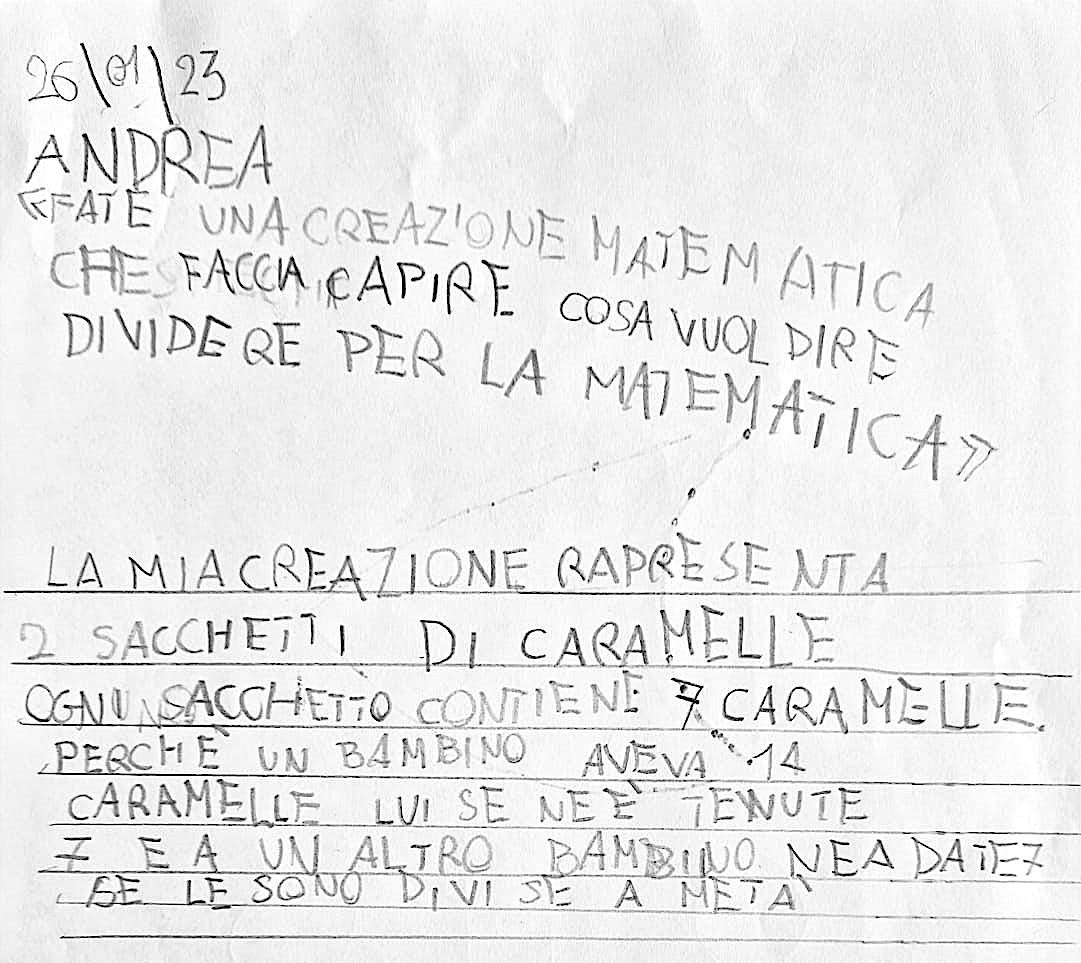 26\01\23
ANDREA
«FATE UNA CREAZIONE MATEMATICA
CHE FACCIA CAPIRE COSA VUOL DIRE
DIVIDERE PER LA MATEMATICA»
LA MIA CREAZIONE RAPRESENTA
2 SACCHETTI DI CARAMELLE
OGNUN SACCHETTO CONTIENE 7 CARAMELLE.
PERCHÈ UN BAMBINO AVEVA 14
CARAMELLE LUI SE NE È TENUTE
7 E A UN ALTRO BAMBINO NE A DATE 7
SE LE SONO DIVISE A METÀ